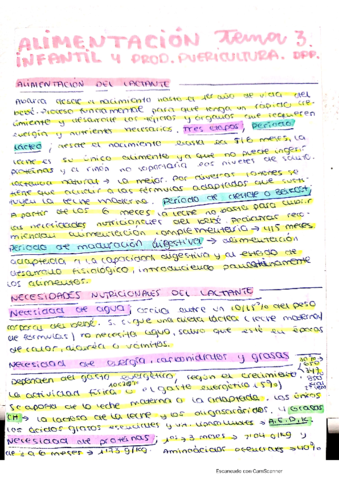 ALIMENTACIÓN Tema 3.
INFANTIL Y PROD. PUERICULTURA. DPP.
ALIMENTACIÓN DEL LACTANTE
Abarca desde el nacimiento hasta el 1er año de vida del
bebé. Proceso fundamental para que tenga un rápido cre-
cimiento y desarrolle los tejidos y órganos que requieren
energía y nutrientes necesarios. Tres etapas, Período
lácteo; desde el nacimiento hasta los 5/6 meses, la
leche es su único alimento ya que no puede ingerir
proteínas y el riñón no soportaría los niveles de soluto.
lactancia natural → la mejor. Por numerosas razones se
tiene que acudir a las fórmulas adaptadas que susti-
tuyen la leche materna. Período de destete o Beikost;
a partir de los 6 meses la leche no basta para cubrir
las necesidades nutricionales del bebé. Pediatras reco-
miendan alimentación complementaria → 4/5 meses
Período de maduración digestiva → alimentación
adaptada a la capacidad digestiva y al estado de
desarrollo fisiológico, introduciendo paulatinamente
los alimentos.
NECESIDADES NUTRICIONALES DEL LACTANTE
Necesidad de agua; oscila entre un 10/15% del peso
corporal del bebé. S. S. que una dieta láctea (leche materna
de fórmulas) no necesita agua, salvo que esté en épocas
de calor, diarrea o vómitos.
Necesidad de energía, carbohidratos y grasas
Dependen del gasto energético, según el crecimiento,
la actividad física o el gasto energético (5%)
Se aporta de la leche materna o la adaptada. Los únicos
CH → la lactosa de la leche y los oligosacáridos. Grasas
los ácidos grasos esenciales y un. A.E.D.K.
Necesidad de proteínas; 1os 3 meses → g/kg y
de a 6 meses → 1'43 g/kg. Aminoácidos esenciales → 40%
Escaneado con CamScanner